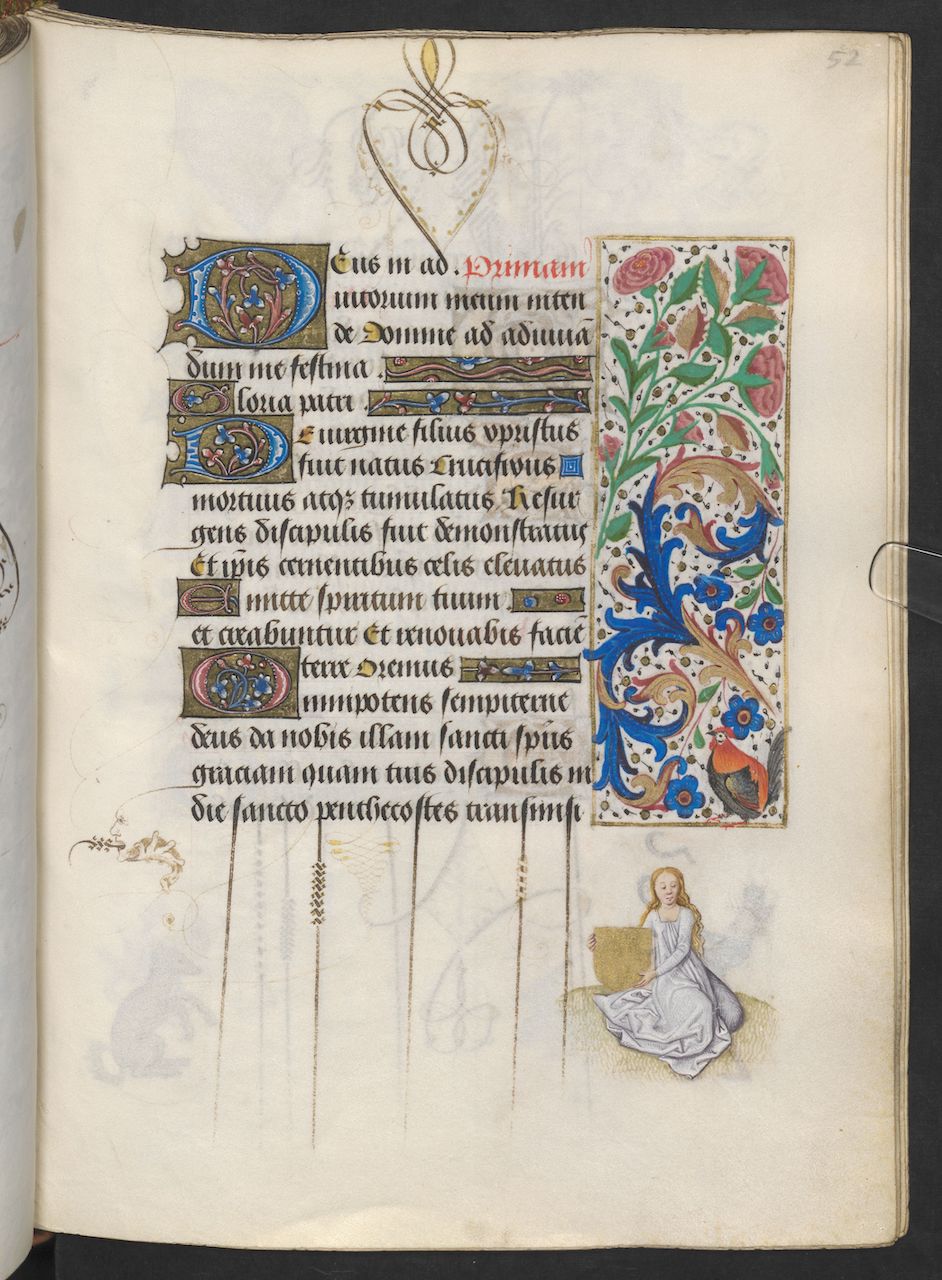 52
Deus in ad. Primam
iutorium meum inten
de Domine ad adiuuā
dum me festina.
Gloria patri.
De uirgine filius xpristus
fuit natus Crucifixus
mortuus atqz tumulatus Resur
gens discipulis fuit demonstratus
Et ip̄is cernentibus celis eleuatus
Emitte spiritum tuum
et creabuntur Et renouabis faciē
terre Oremus
Omnipotens sempiterne
deus da nobis illam sancti sp̄us
graciam quam tuis discipulis in
die sancto penthecostes transmisi